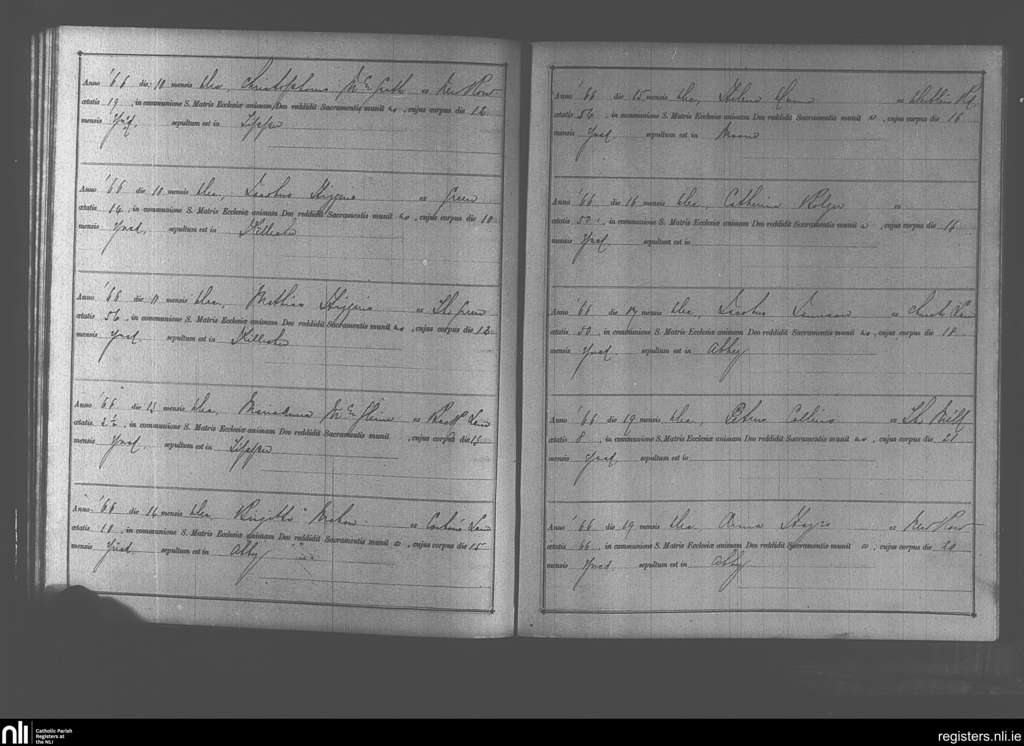 Anno '66 die 10 mensis Dec, Christophorus McGrath ex New Row
ætatis 19, in communione S. Matris Ecclesiæ animam Deo reddidit Sacramentis munit us, cujus corpus die 12
mensis Præd. sepultum est in
Anno '66 die 10 mensis Dec, Jacobus Higgins ex Green
ætatis 14, in communione S. Matris Ecclesiæ animam Deo reddidit Sacramentis munit us, cujus corpus die 10
mensis Præd. sepultum est in
Anno '66 die 11 mensis Dec, Mathias Higgins ex The Green
ætatis 56, in communione S. Matris Ecclesiæ animam Deo reddidit Sacramentis munit us, cujus corpus die 12
mensis Præd. sepultum est in
Anno '66 die 13 mensis Dec, McGlinn ex Lane
ætatis 2½, in communione S. Matris Ecclesiæ animam Deo reddidit Sacramentis munit , cujus corpus die 15
mensis Præd. sepultum est in
Anno '66 die 14 mensis Dec, Brigitta Mahon ex Lane
ætatis 10, in communione S. Matris Ecclesiæ animam Deo reddidit Sacramentis munit a, cujus corpus die 15
mensis Præd. sepultum est in Abby
Anno '66 die 15 mensis Dec, Helena ex Dublin Rd
ætatis 56, in communione S. Matris Ecclesiæ animam Deo reddidit Sacramentis munit a, cujus corpus die 16
mensis Præd. sepultum est in
Anno '66 die 16 mensis Dec, Catherina ex
ætatis 50, in communione S. Matris Ecclesiæ animam Deo reddidit Sacramentis munit a, cujus corpus die
mensis Præd. sepultum est in
Anno '66 die 17 mensis Dec, Jacobus ex Lane
ætatis 50, in communione S. Matris Ecclesiæ animam Deo reddidit Sacramentis munit us, cujus corpus die 18
mensis Præd. sepultum est in Abby
Anno '66 die 19 mensis Dec, Petrus Collins ex The Mill
ætatis 8, in communione S. Matris Ecclesiæ animam Deo reddidit Sacramentis munit us, cujus corpus die 21
mensis Præd. sepultum est in
Anno '66 die 19 mensis Dec, Anna Hayes ex New Row
ætatis 66, in communione S. Matris Ecclesiæ animam Deo reddidit Sacramentis munit a, cujus corpus die 20
mensis Præd. sepultum est in Abby
nli Catholic Parish
Registers at
the NLI
registers.nli.ie